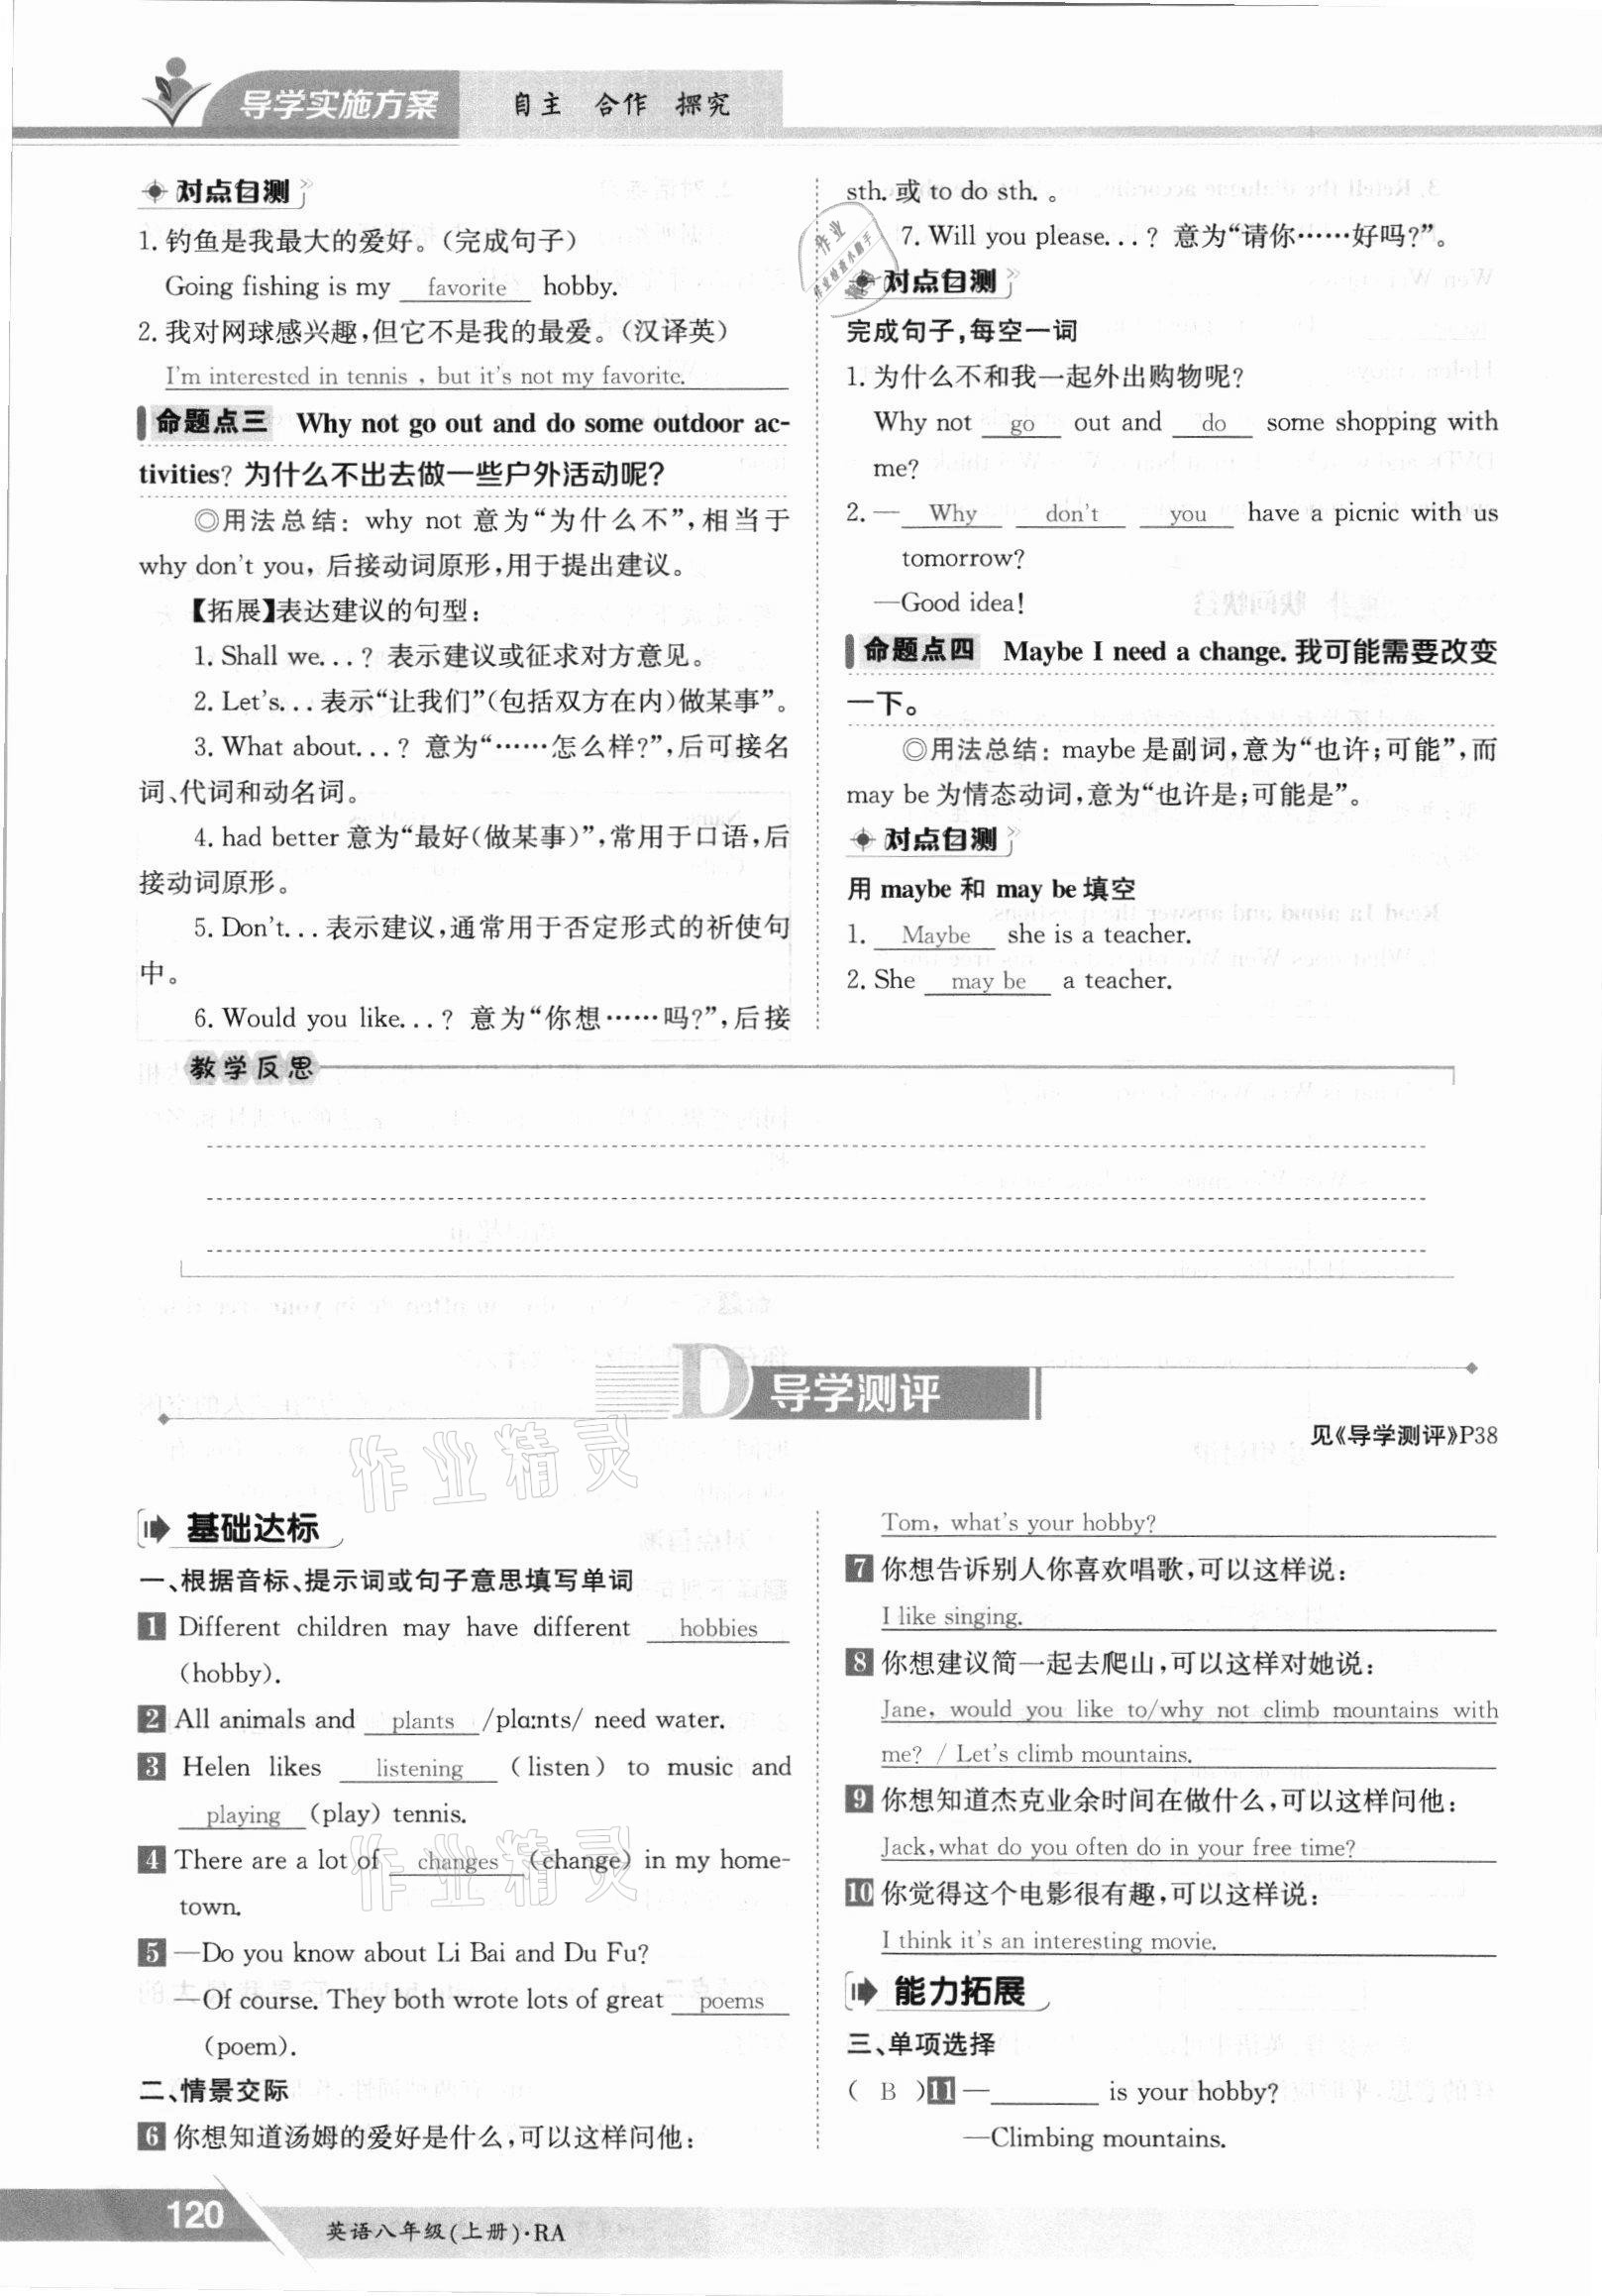 导学实施方案 自主 合作 探究
对点自测
1. 钓鱼是我最大的爱好。(完成句子)
Going fishing is my favorite hobby.
2. 我对网球感兴趣,但它不是我的最爱。(汉译英)
I'm interested in tennis , but it's not my favorite.
命题点三 Why not go out and do some outdoor ac-
tivities? 为什么不出去做一些户外活动呢?
◎用法总结: why not 意为“为什么不”,相当于
why don't you, 后接动词原形,用于提出建议。
【拓展】表达建议的句型:
1. Shall we...? 表示建议或征求对方意见。
2. Let's... 表示“让我们”(包括双方在内)做某事”。
3. What about...? 意为“……怎么样?”,后可接名
词、代词和动名词。
4. had better 意为“最好(做某事)”,常用于口语,后
接动词原形。
5. Don't... 表示建议,通常用于否定形式的祈使句
中。
6. Would you like...? 意为“你想……吗?”,后接
sth. 或 to do sth. 。
7. Will you please...? 意为“请你……好吗?”。
对点自测
完成句子,每空一词
1. 为什么不和我一起外出购物呢?
Why not go out and do some shopping with
me?
2. — Why don't you have a picnic with us
tomorrow?
—Good idea!
命题点四 Maybe I need a change. 我可能需要改变
一下。
◎用法总结: maybe 是副词,意为“也许;可能”,而
may be 为情态动词,意为“也许是;可能是”。
对点自测
用 maybe 和 may be 填空
1. Maybe she is a teacher.
2. She may be a teacher.
教学反思
D 导学测评
见《导学测评》P38
基础达标
一、根据音标、提示词或句子意思填写单词
1 Different children may have different hobbies
(hobby).
2 All animals and plants /plɑːnts/ need water.
3 Helen likes listening (listen) to music and
playing (play) tennis.
4 There are a lot of changes (change) in my home-
town.
5 —Do you know about Li Bai and Du Fu?
—Of course. They both wrote lots of great poems
(poem).
二、情景交际
6 你想知道汤姆的爱好是什么,可以这样问他:
Tom, what's your hobby?
7 你想告诉别人你喜欢唱歌,可以这样说:
I like singing.
8 你想建议简一起去爬山,可以这样对她说:
Jane, would you like to/why not climb mountains with
me? / Let's climb mountains.
9 你想知道杰克业余时间在做什么,可以这样问他:
Jack,what do you often do in your free time?
10 你觉得这个电影很有趣,可以这样说:
I think it's an interesting movie.
能力拓展
三、单项选择
( B )11 —________ is your hobby?
—Climbing mountains.
作业精灵
作业精灵
120 英语八年级(上册)·RA